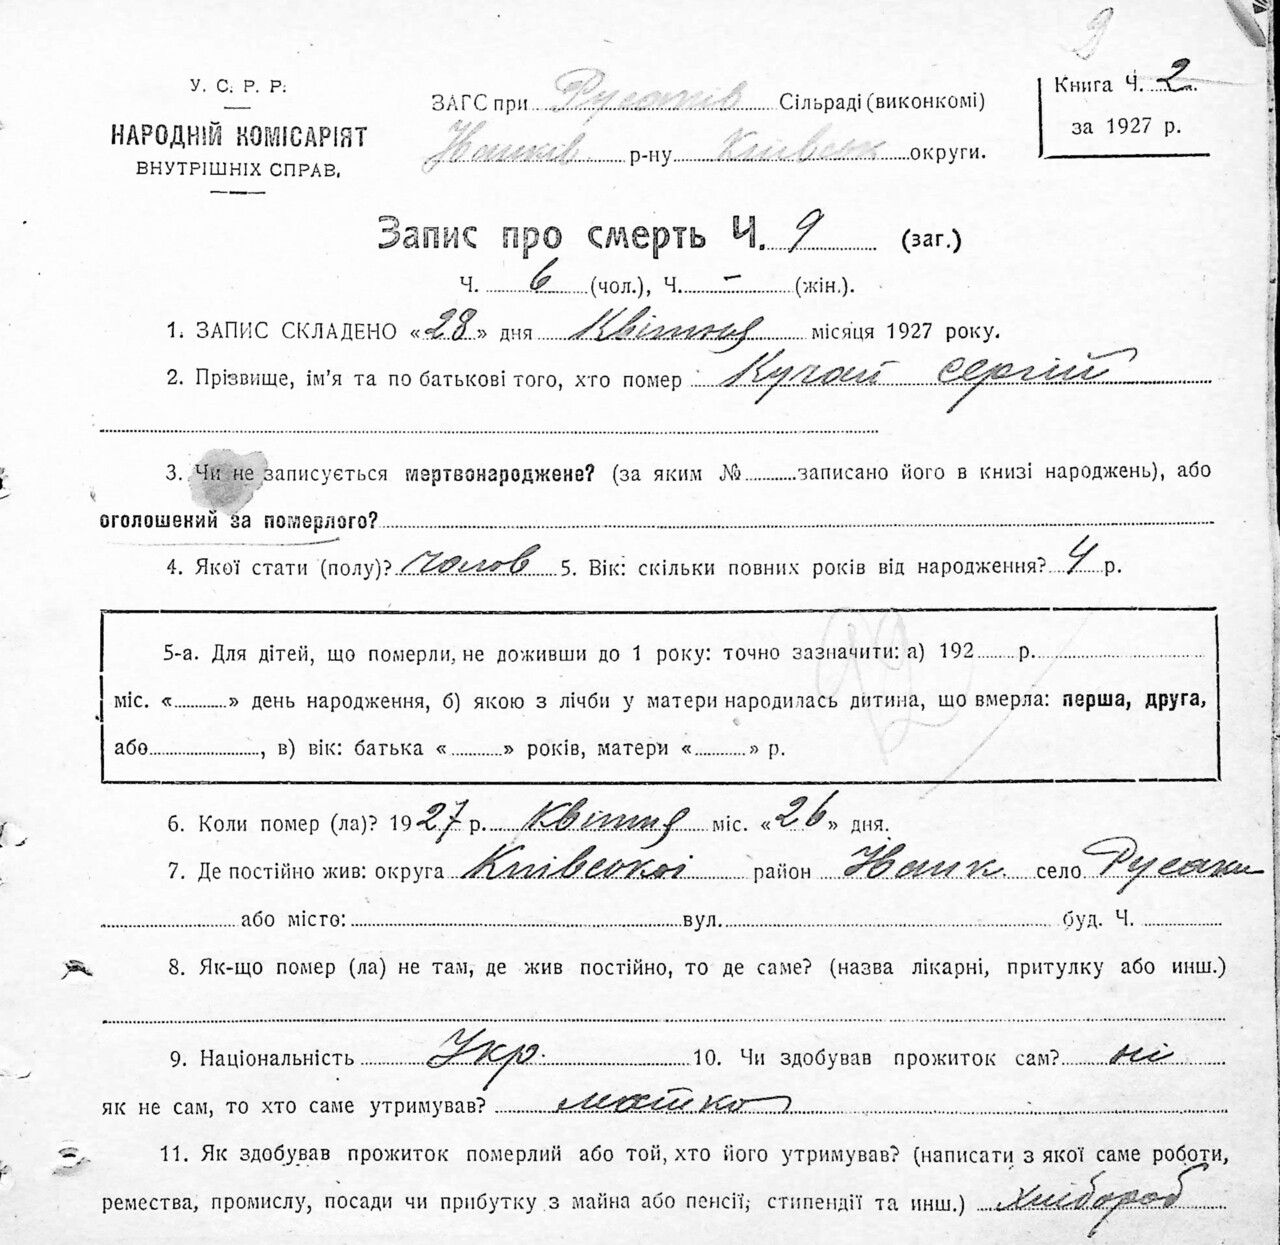 9
У. С. Р. Р.
НАРОДНІЙ КОМІСАРІЯТ
ВНУТРІШНІХ СПРАВ.
ЗАГС при Русанів Сільраді (виконкомі)
р-ну Київськ округи.
Книга Ч. 2.
за 1927 р.
Запис про смерть Ч. 9 (заг.)
Ч. 6 (чол.), Ч. - (жін.).
1. ЗАПИС СКЛАДЕНО «28» дня Квітня місяця 1927 року.
2. Прізвище, ім'я та по батькові того, хто помер Кучай Сергій
3. Чи не записується мертвонароджене? (за яким № записано його в книзі народжень), або
оголошений за померлого?
4. Якої стати (полу)? чолов 5. Вік: скільки повних років від народження? 4 р.
5-а. Для дітей, що померли, не доживши до 1 року: точно зазначити: а) 192 р.
міс. « » день народження, б) якою з лічби у матери народилась дитина, що вмерла: перша, друга,
або , в) вік: батька « » років, матери « » р.
6. Коли помер (ла)? 1927 р. Квітня міс. «26» дня.
7. Де постійно жив: округа Київської район село Русанів
або місто: вул. буд. Ч.
8. Як-що помер (ла) не там, де жив постійно, то де саме? (назва лікарні, притулку або инш.)
9. Національність Укр. 10. Чи здобував прожиток сам? ні
як не сам, то хто саме утримував? матко
11. Як здобував прожиток померлий або той, хто його утримував? (написати з якої саме роботи,
ремества, промислу, посади чи прибутку з майна або пенсії, стипендії та инш.) хлібороб